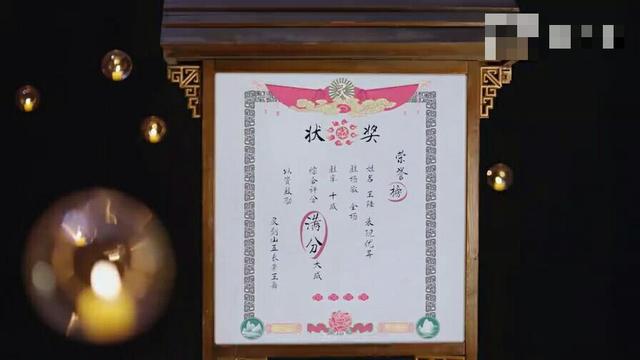 灵
奖状
荣誉榜
姓名王陆 表现优异
胜场数 全场
胜率 十成
综合评分 满分 大成
以资鼓励
灵剑山五长老王舞